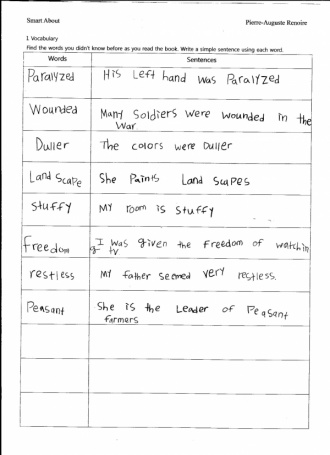 Smart About
Pierre-Auguste Renoire
I Vocabulary
Find the words you didn't know before as you read the book. Write a simple sentence using each word.
Words
Sentences
Paralyzed
His Left hand was Paralyzed
Wounded
Many Soldiers were wounded in the
War
Duller
The colors were Duller
Land Scape
She Paints Land Scapes
Stuffy
My room is Stuffy
Freedom
I was given the Freedom of watchin
g tv
restless
My father Seemed very restless.
Peasant
She is the Leader of Peasant
farmers